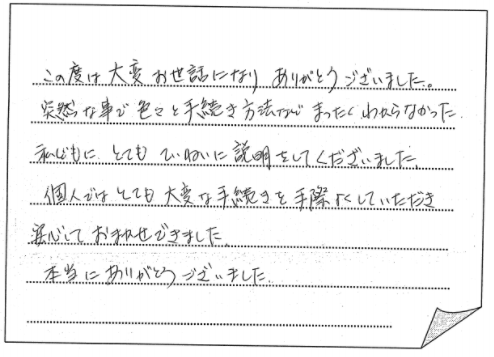 この度は大変お世話になり ありがとうございました。
突然な事で色々と手続き方法など まったくわからなかった
私どもに とても ていねいに説明をしてくださいました。
個人ではとても大変な手続きを手際よくしていただき
安心して おまかせできました。
本当にありがとうございました。